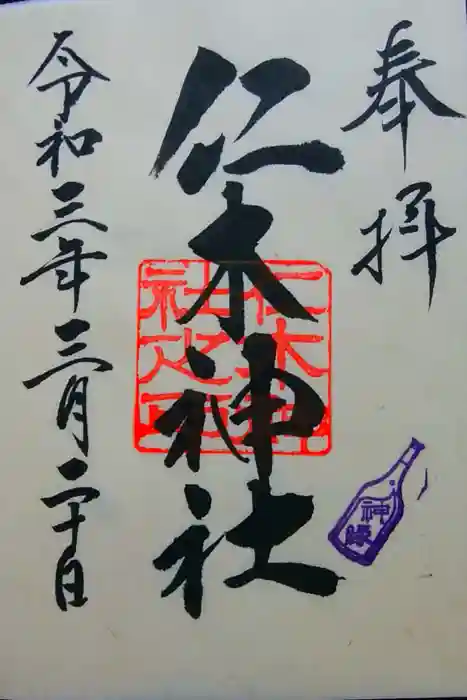 奉拝
仁木神社
仁木神
社之印
令和三年三月二十日
神縁